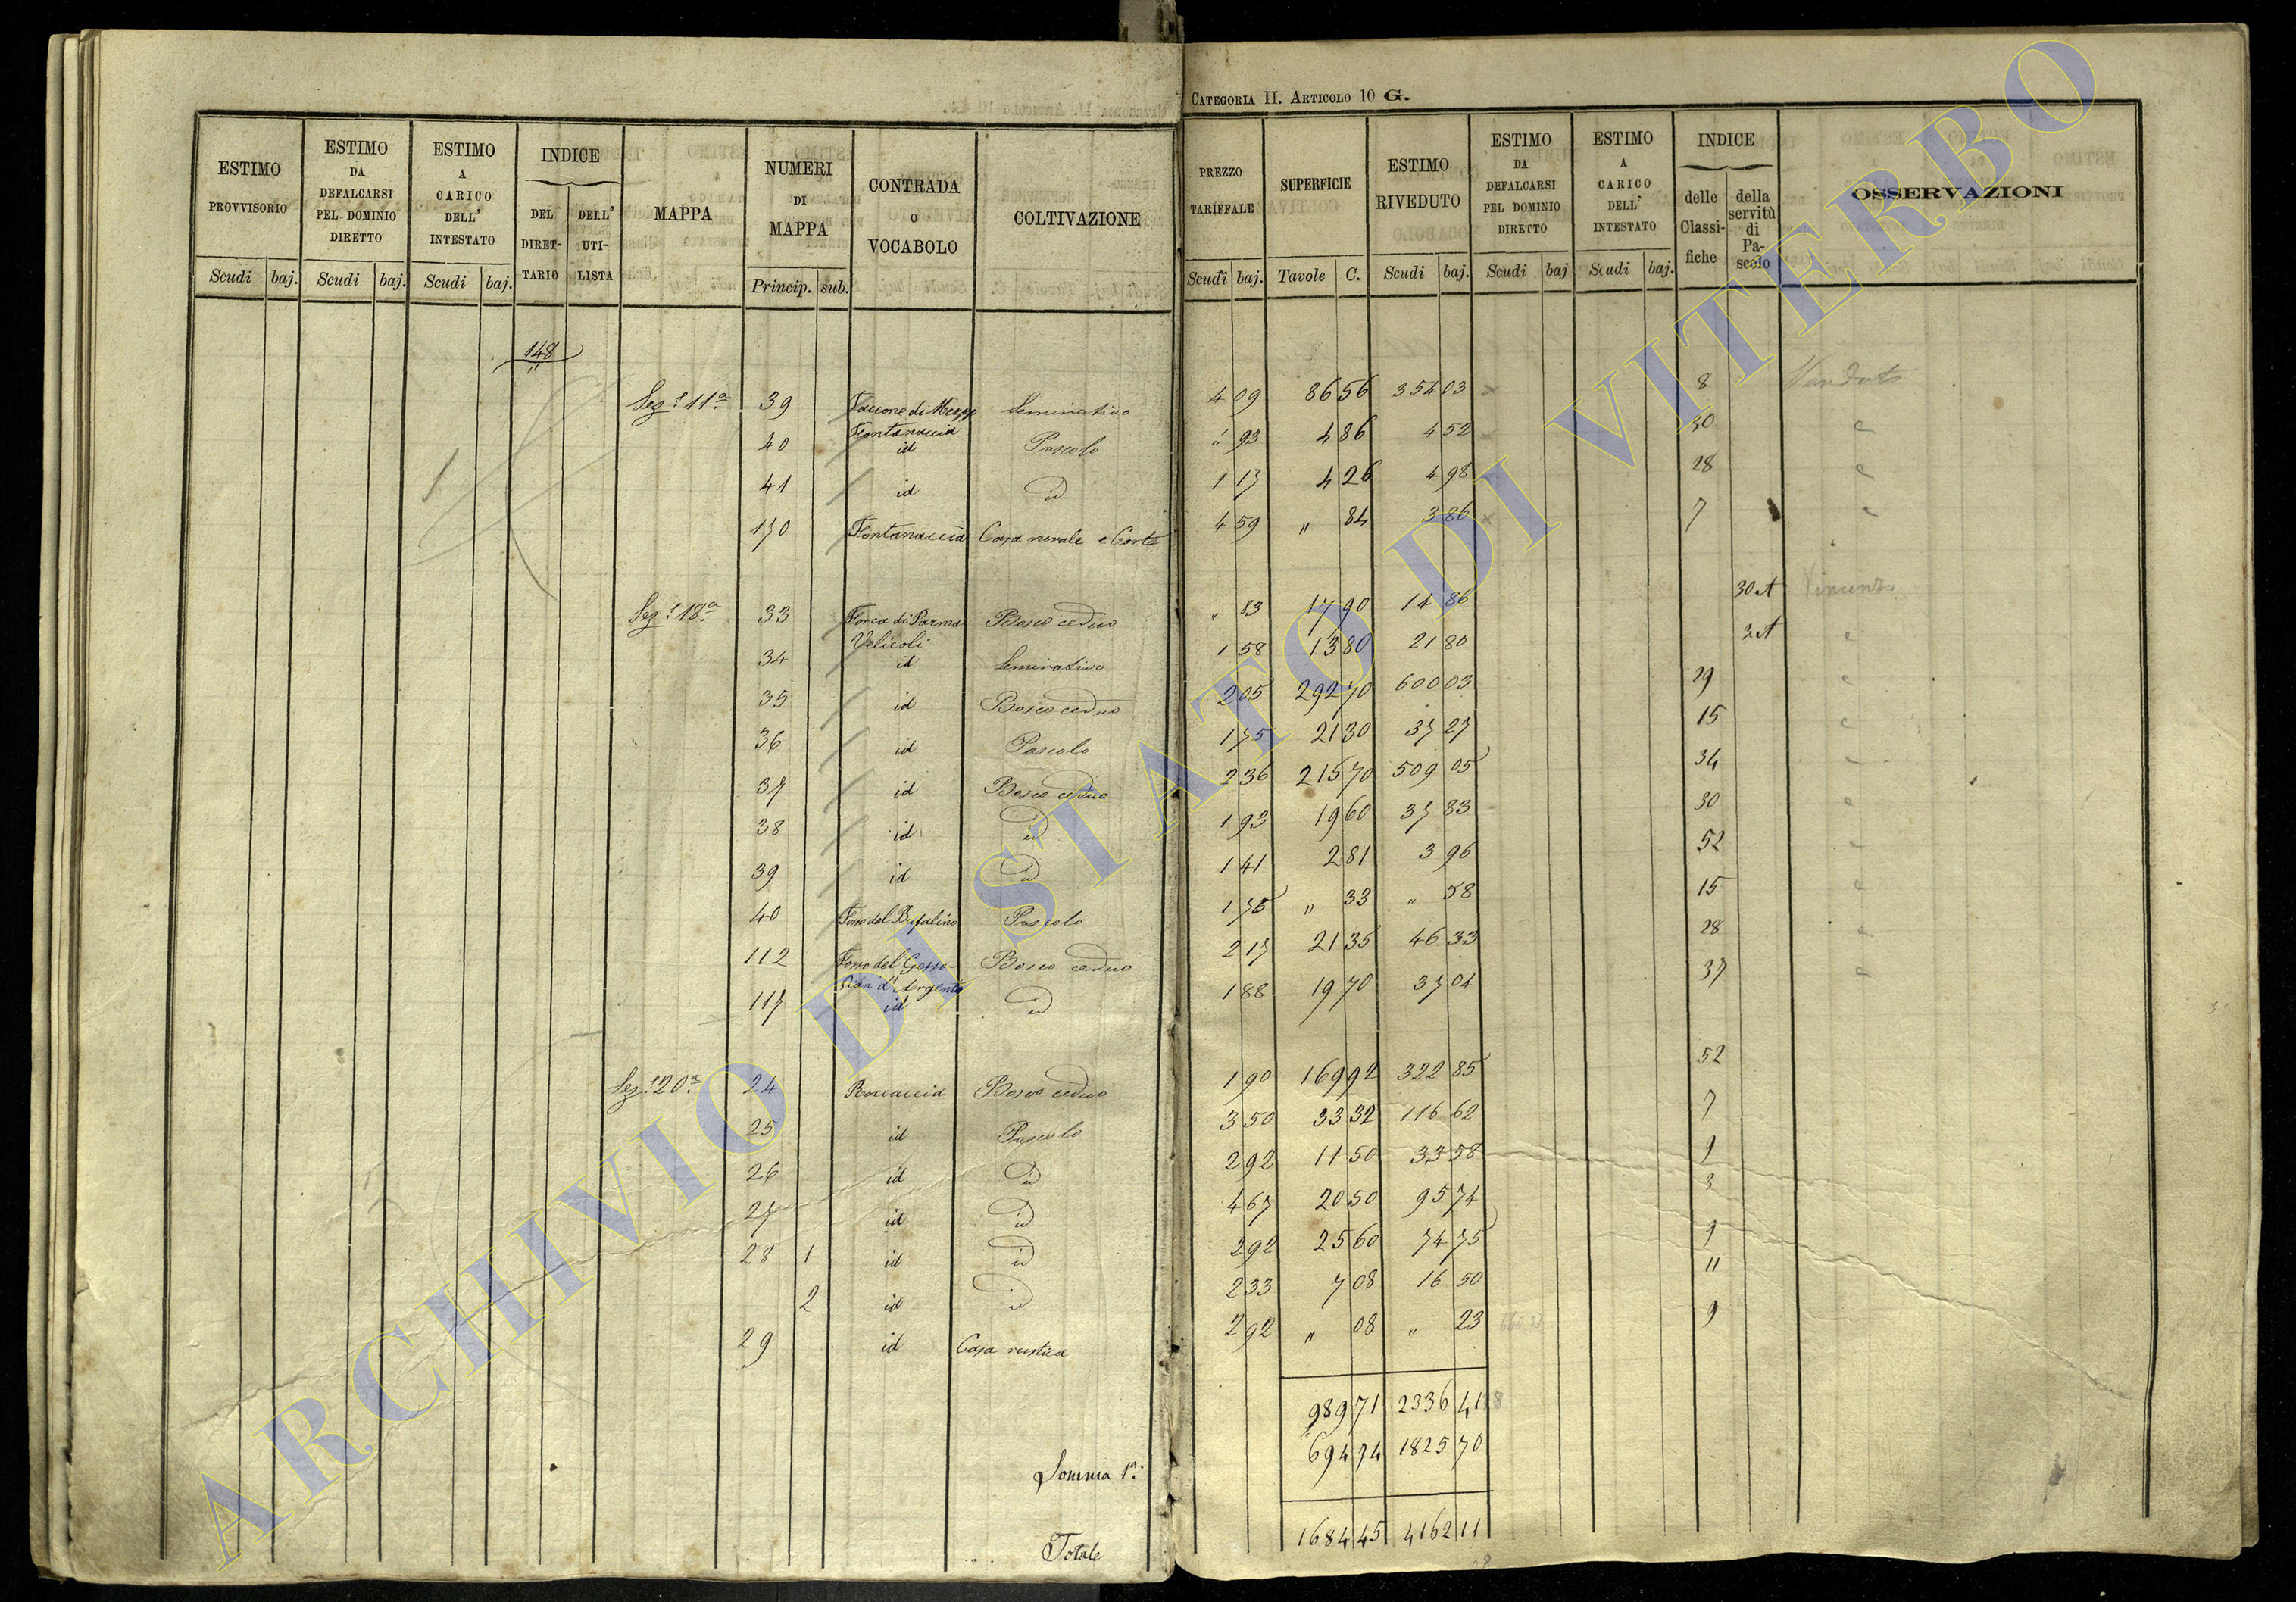 CATEGORIA II. ARTICOLO 10 G.
ESTIMO PROVVISORIO Scudi baj.
ESTIMO DA DEFALCARSI PEL DOMINIO DIRETTO Scudi baj.
ESTIMO A CARICO DELL' INTESTATO Scudi baj.
INDICE DEL DIRETTARIO DELL' UTILISTA
MAPPA
NUMERI DI MAPPA Princip. sub.
CONTRADA O VOCABOLO
COLTIVAZIONE
PREZZO TARIFFALE Scudi baj.
SUPERFICIE Tavole C.
ESTIMO RIVEDUTO Scudi baj.
ESTIMO DA DEFALCARSI PEL DOMINIO DIRETTO Scudi baj
ESTIMO A CARICO DELL' INTESTATO Scudi baj.
INDICE delle Classifiche della servitù di Pascolo
OSSERVAZIONI
148
Sez.e 11a 39 di Mezzo Fontanaccia Seminativo 4 09 86 56 354 03 8 Venduto
40 id Pascolo " 93 4 86 4 52 30
41 id id 1 17 4 26 4 98 28
170 Fontanaccia Casa rurale e Corte 4 59 " 84 3 86 7
Sez.e 18a 33 Velicoli Bosco ceduo " 83 17 90 14 86 30 A
34 id Seminativo 1 58 13 80 21 80 3 A
35 id Bosco ceduo 2 05 292 70 600 03 29
36 id Pascolo 1 75 21 30 37 27 15
37 id Bosco ceduo 2 36 215 70 509 05 34
38 id id 1 93 19 60 37 83 30
39 id id 1 41 2 81 3 96 52
40 Fosso del Bufalino Pascolo 1 75 " 33 " 58 15
112 Fosso del Gesso Pian d'Argento Bosco ceduo 2 17 21 35 46 33 28
117 id id 1 88 19 70 37 04 37
Sez.e 20a 24 Roccaccia Bosco ceduo 1 90 169 92 322 85 52
25 id Pascolo 3 50 33 32 116 62 7
26 id id 2 92 11 50 33 58 9
27 id id 4 67 20 50 95 74 3
28 1 id id 2 92 25 60 74 75 9
2 id id 2 33 7 08 16 50 11
29 id Casa rustica 2 92 " 08 " 23 9
989 71 2336 41
Somma 1a. 694 74 1825 70
Totale 1684 45 4162 11
ARCHIVIO DI STATO DI VITERBO